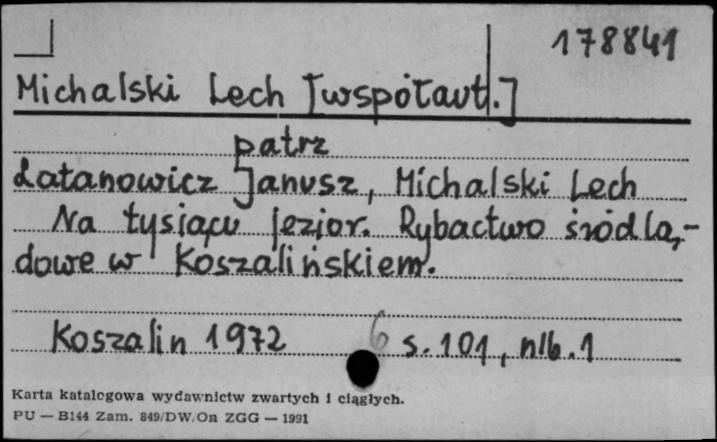 178841
Michalski Lech [współaut.]
patrz
Łatanowicz Janusz, Michalski Lech
Na tysiącu jezior. Rybactwo śródlą-
dowe w Koszalińskiem.
Koszalin 1972 6 s. 101, nlb. 1
Karta katalogowa wydawnictw zwartych i ciągłych.
PU — B144 Zam. 849/DW/On ZGG — 1991